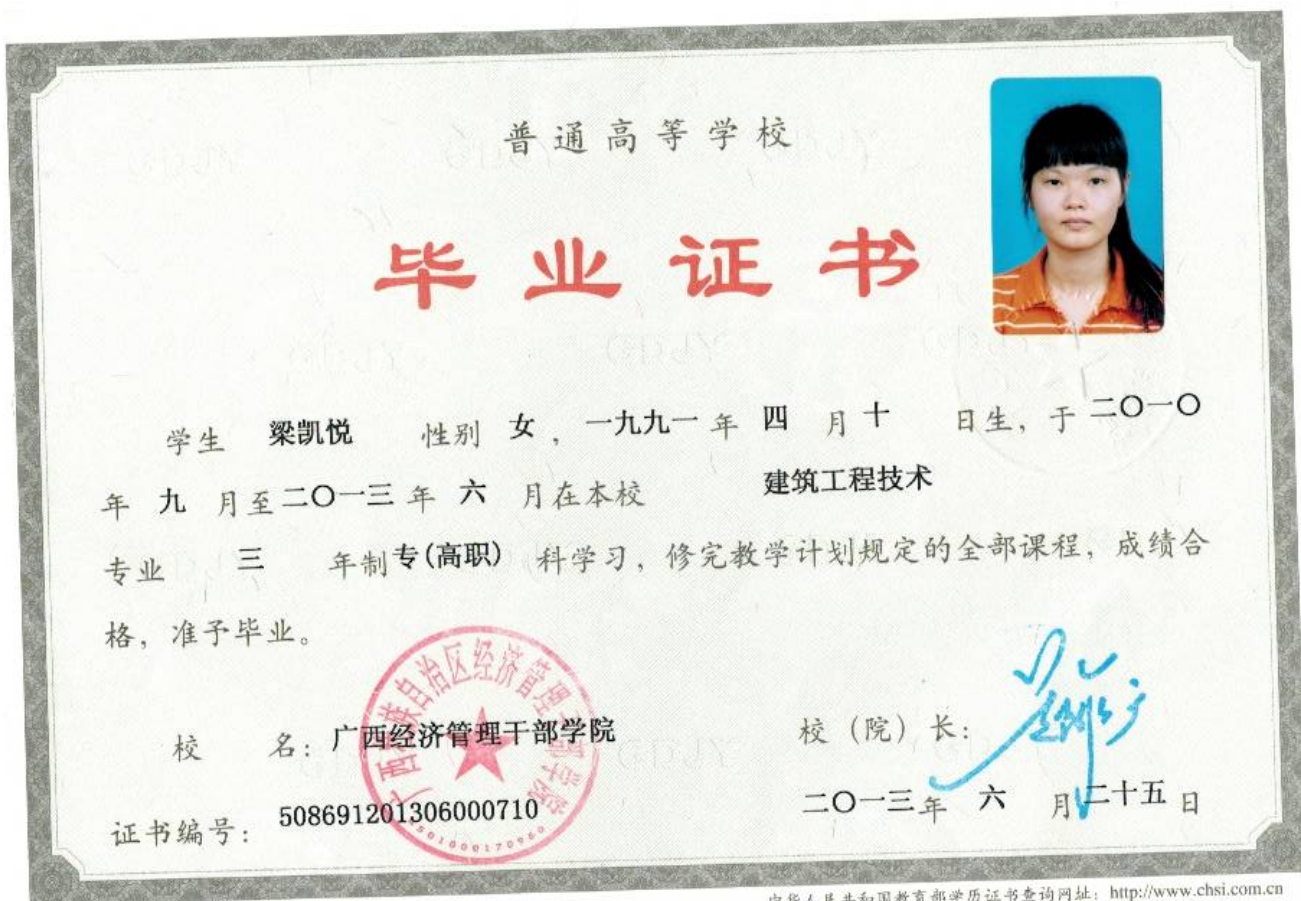 普通高等学校
毕业证书
学生 梁凯悦 性别 女，一九九一 年 四 月 十 日生，于 二〇一〇
年 九 月至 二〇一三 年 六 月在本校 建筑工程技术
专业 三 年制 专(高职) 科学习，修完教学计划规定的全部课程，成绩合
格，准予毕业。
校 名：广西经济管理干部学院
校（院）长：
证书编号：508691201306000710
二〇一三年 六 月 二十五 日
中华人民共和国教育部学历证书查询网址：http://www.chsi.com.cn